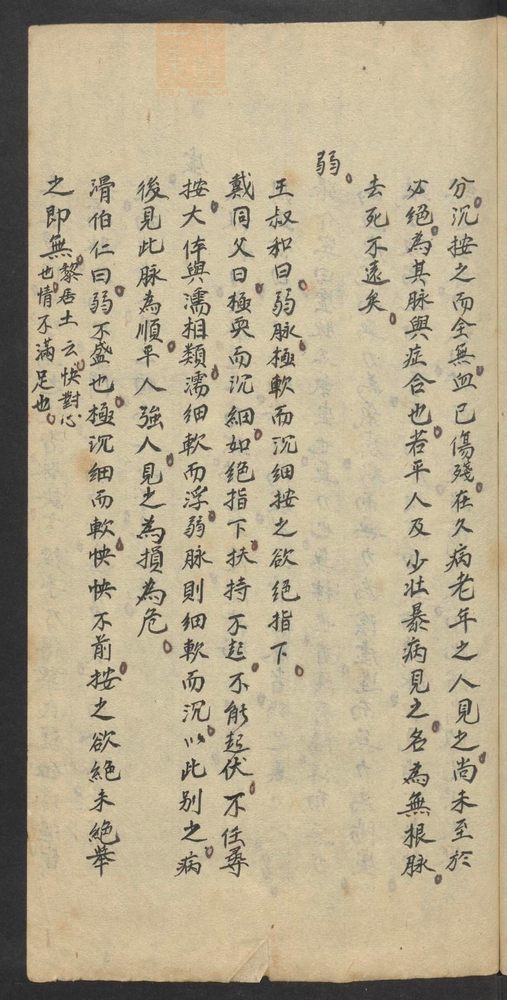 分沉按之而全無血已傷殘在久病老年之人見之尚未至於
必絕為其脉與症合也若平人及少壯暴病見之名為無根脉
去死不遠矣
弱
王叔和曰弱脉極軟而沉細按之欲絕指下
戴同父曰極耎而沉細如絕指下扶持不起不能起伏不任尋
按大体與濡相類濡細軟而浮弱脉則細軟而沉以此别之病
後見此脉為順平人強人見之為損為危
滑伯仁曰弱不盛也極沉细而軟怏怏不前按之欲絕未絕舉
之即無黎居士云怏對心
也情不滿足也